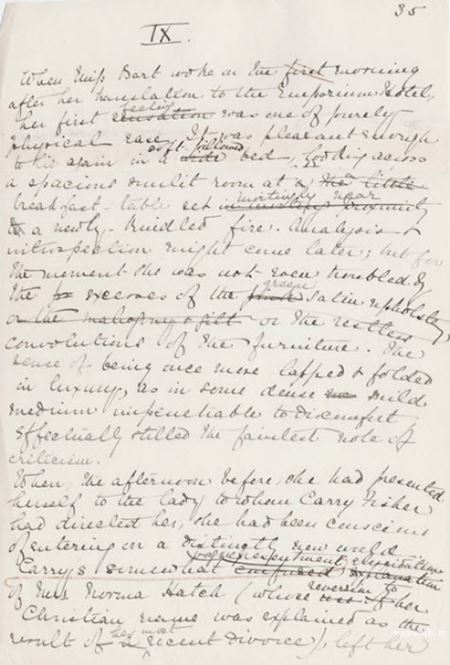 35
IX.
When Miss Bart woke on the first morning
after her translation to the Emporium Hotel,
her first sensation feeling was one of purely
physical ease. It was pleasant enough
to lie again in a wide soft pillowed bed, looking across
a spacious sunlit room at a the little
breakfast-table set in inviting proximity invitingly near
to a newly-kindled fire. Analysis &
introspection might come later; but for
the moment she was not even troubled by
the excesses of the green satin upholstery,
or the mahogany & gilt or the restless
convolutions of the furniture. The
sense of being once more lapped & folded
in luxury, as in some dense mild
medium impenetrable to discomfort
effectually stilled the faintest note of
criticism.
When, the afternoon before, she had presented
herself to the lady to whom Carry Fisher
had directed her, she had been conscious
of entering on a distinctly new world
Carry's somewhat confused explanation
of Mrs Norma Hatch (whose reversion to her
Christian name was explained as the
result of her most recent divorce) left her